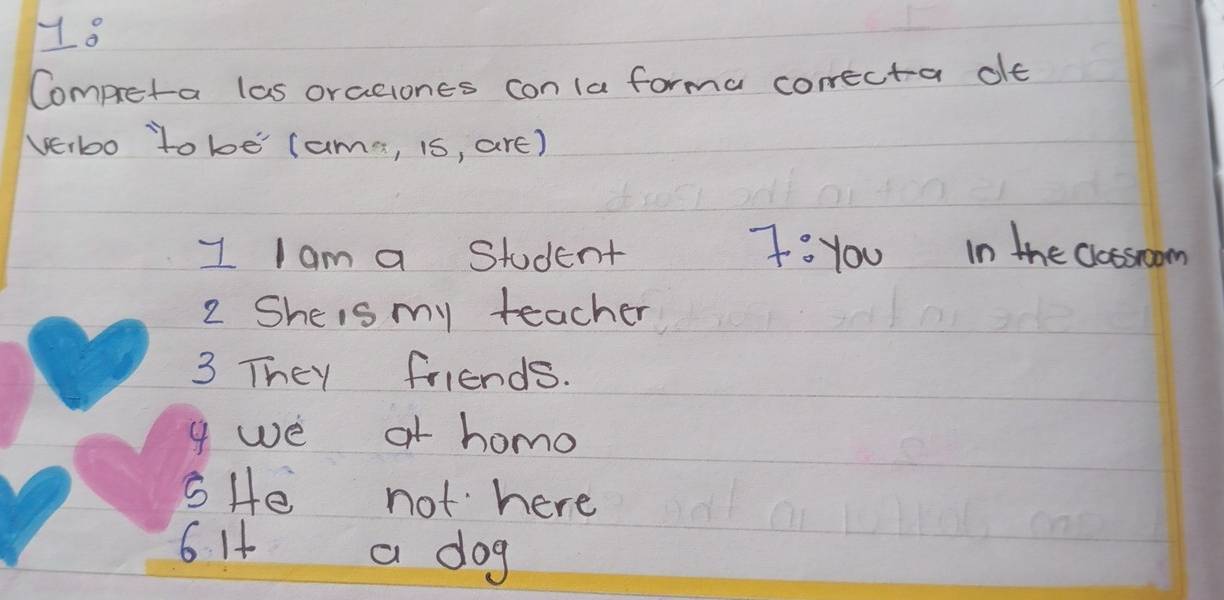 1:
Compreta las oraciones con la forma correcta de
verbo "to be" (am, is, are)
1 I am a Student 7: You in the classroom
2 She is my teacher
3 They friends.
4 we at homo
5 He not here
6 It a dog